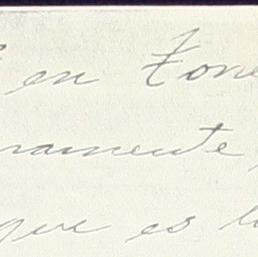 en Zone
ramente
que es l